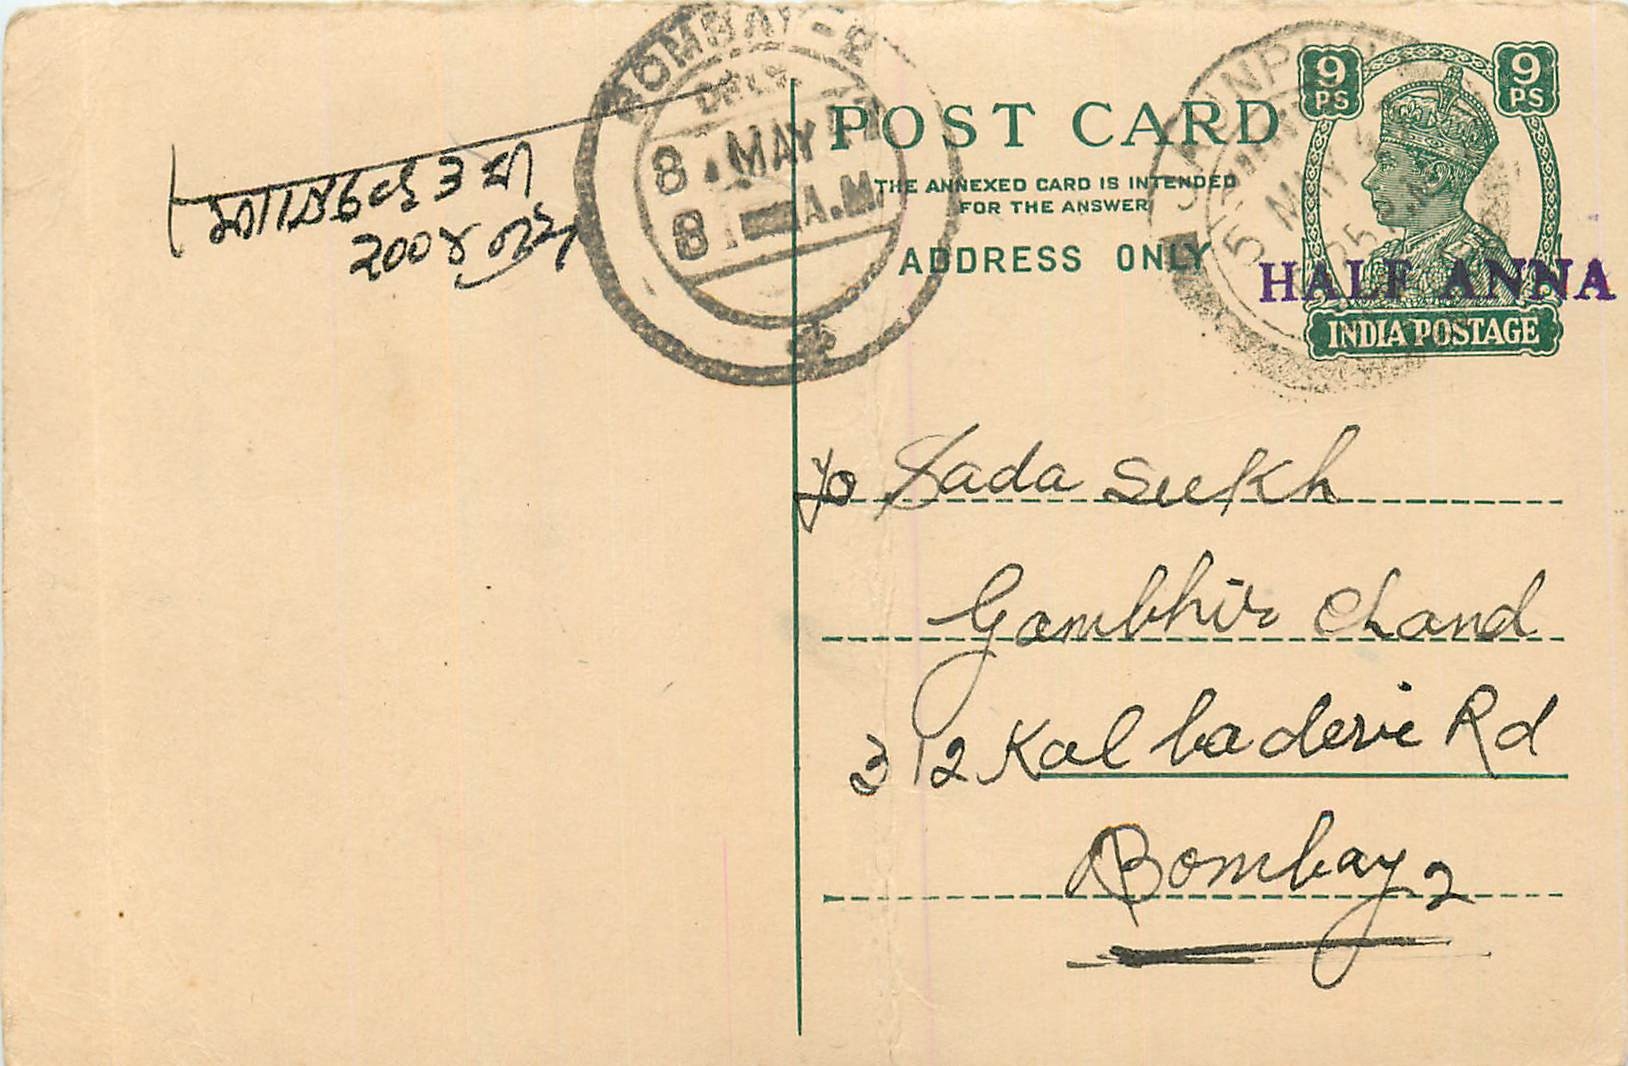 BOMBAY-2
DELY.
8. MAY 47
8 1 A.M.
POST CARD
THE ANNEXED CARD IS INTENDED
FOR THE ANSWER
ADDRESS ONLY
5 MAY
9 PS
9 PS
HALF ANNA
INDIA POSTAGE
Sada Sukh
Gambhir Chand
312 Kalbaderie Rd
Bombay 2